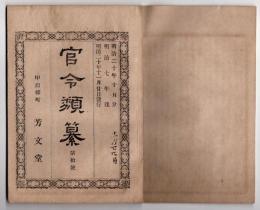 明治二十年十月分
明治七年達
明治二十年十二月廿日發行
官令類纂
第拾號
甲府柳町
芳文堂